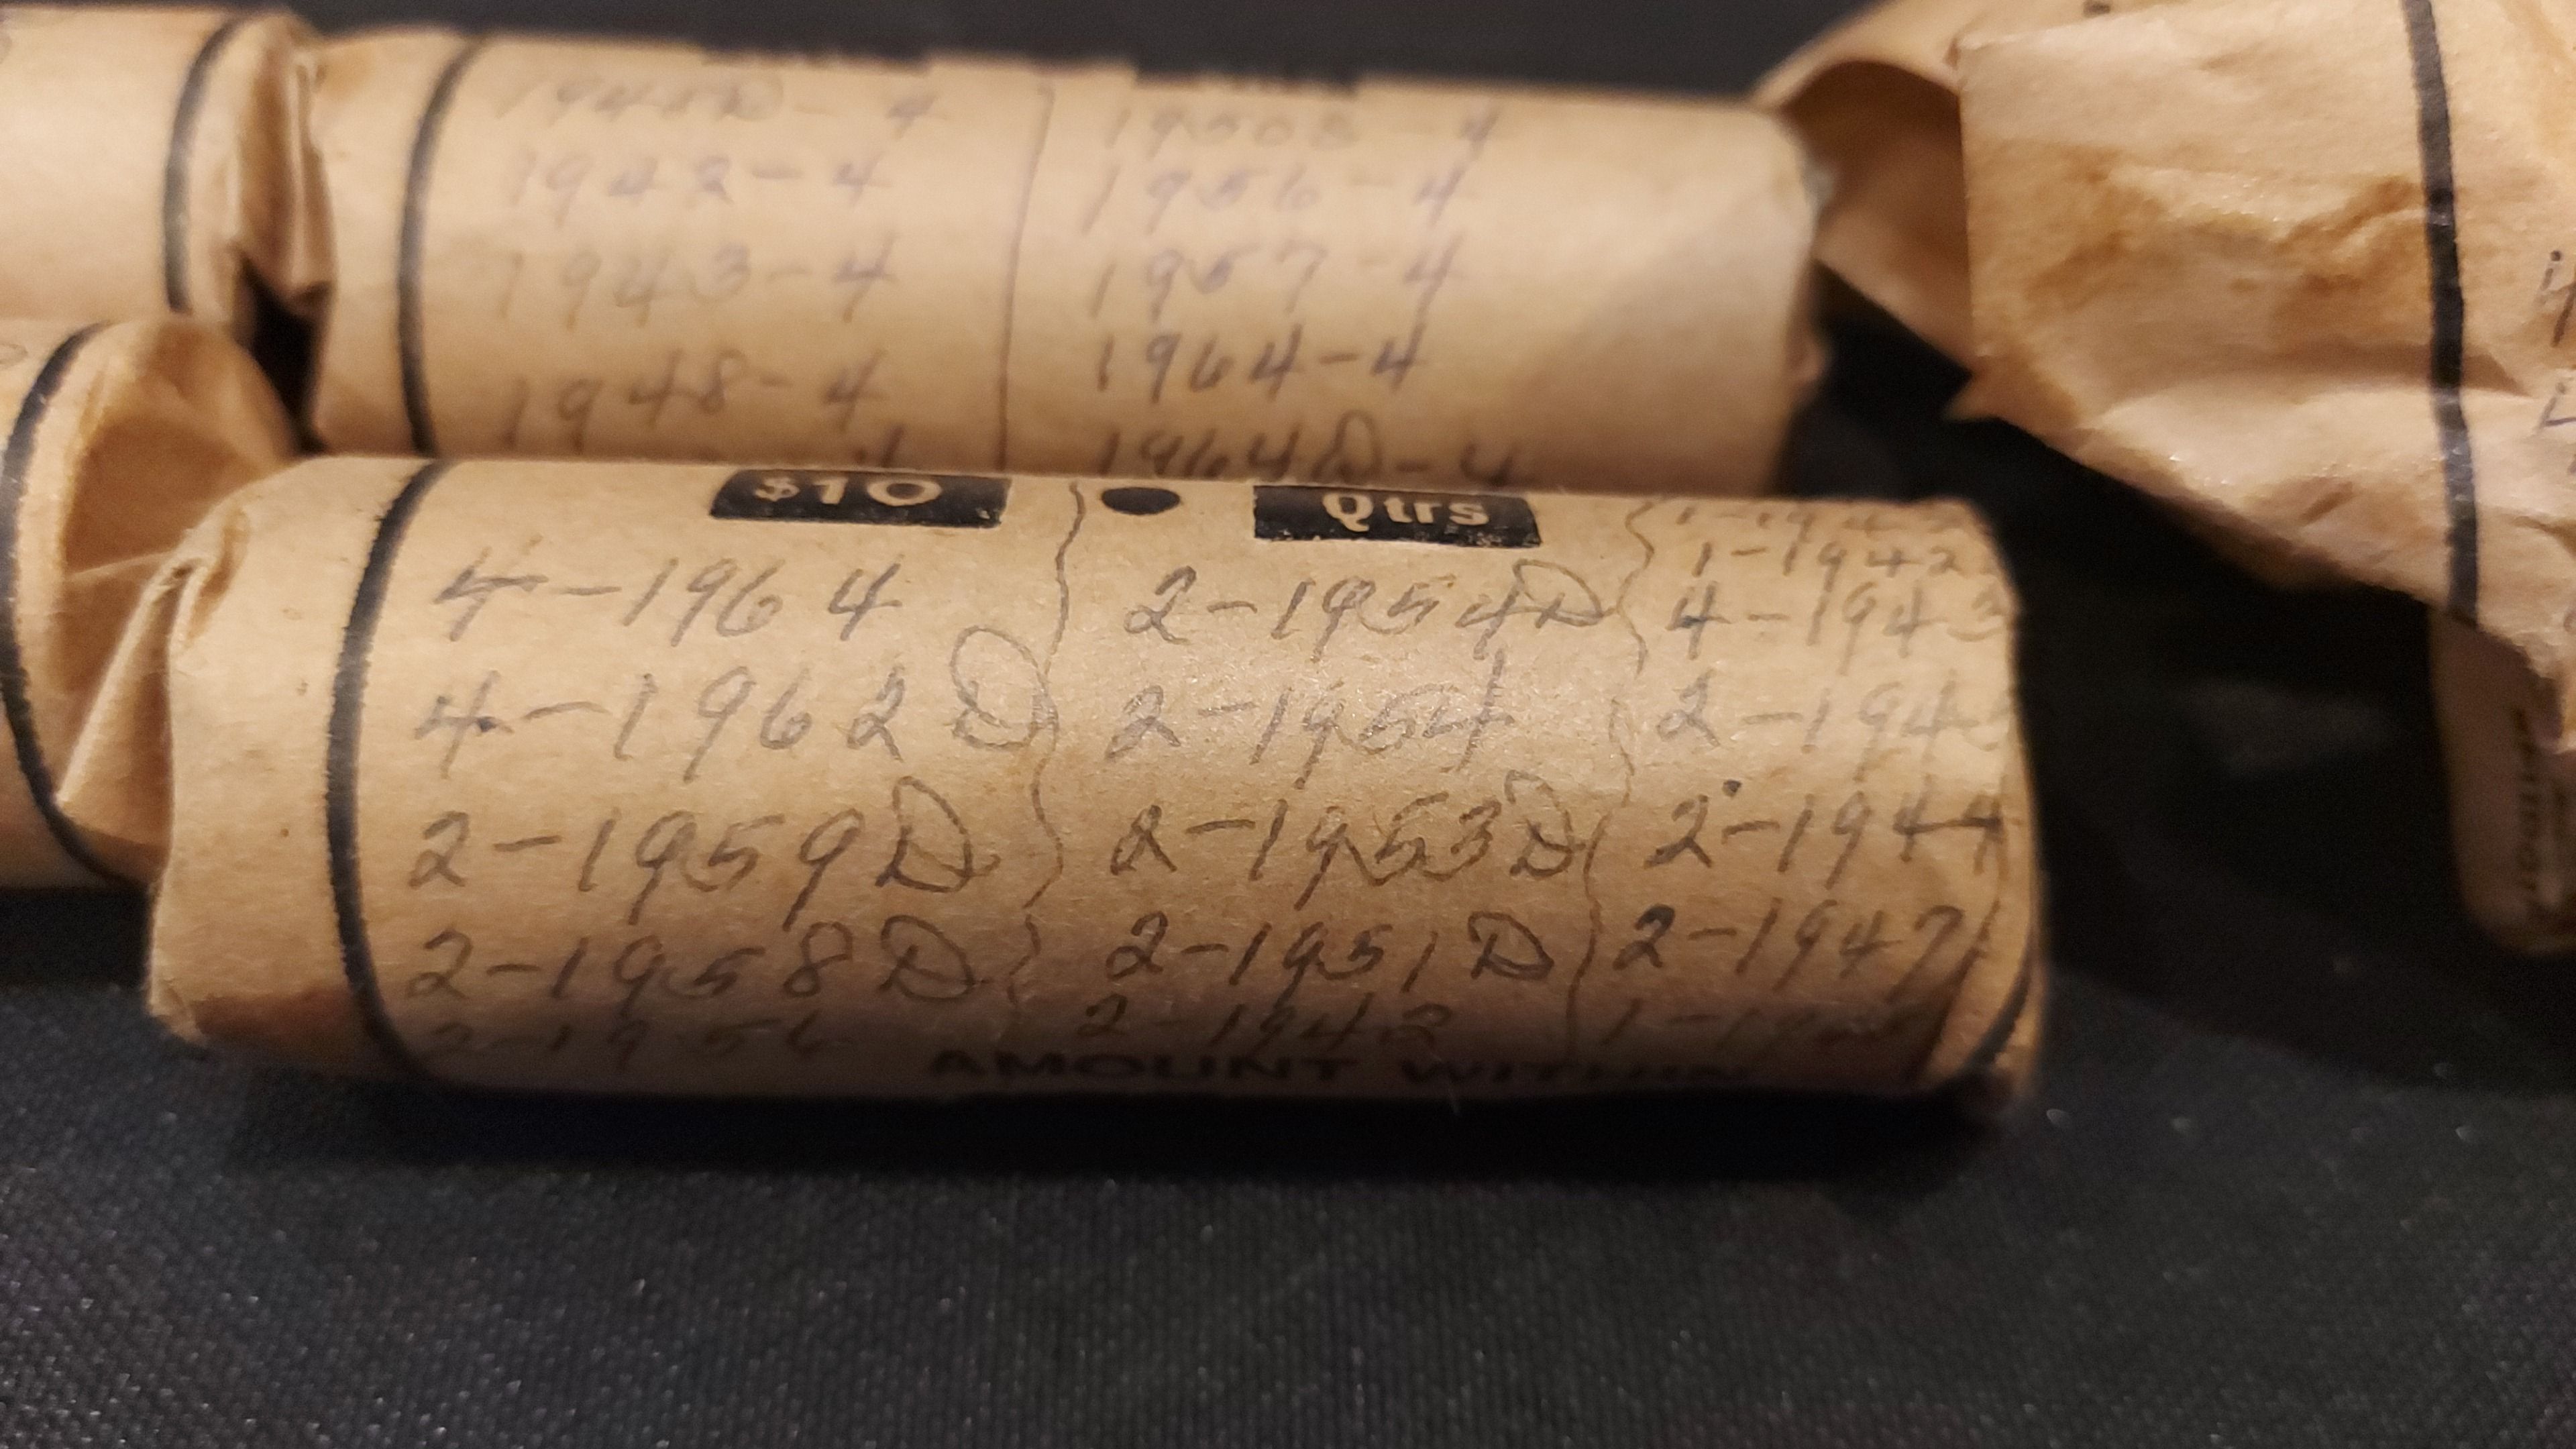 1942-4
1943-4
1948-4
1956-4
1957-4
1964-4
1964D-4
$10
Qtrs
4-1964
4-1962D
2-1959D
2-1958D
2-1956
2-1954D
2-1954
2-1953D
2-1951D
2-1942
1-1942
4-1943
2-1944
2-1947
AMOUNT WITHIN